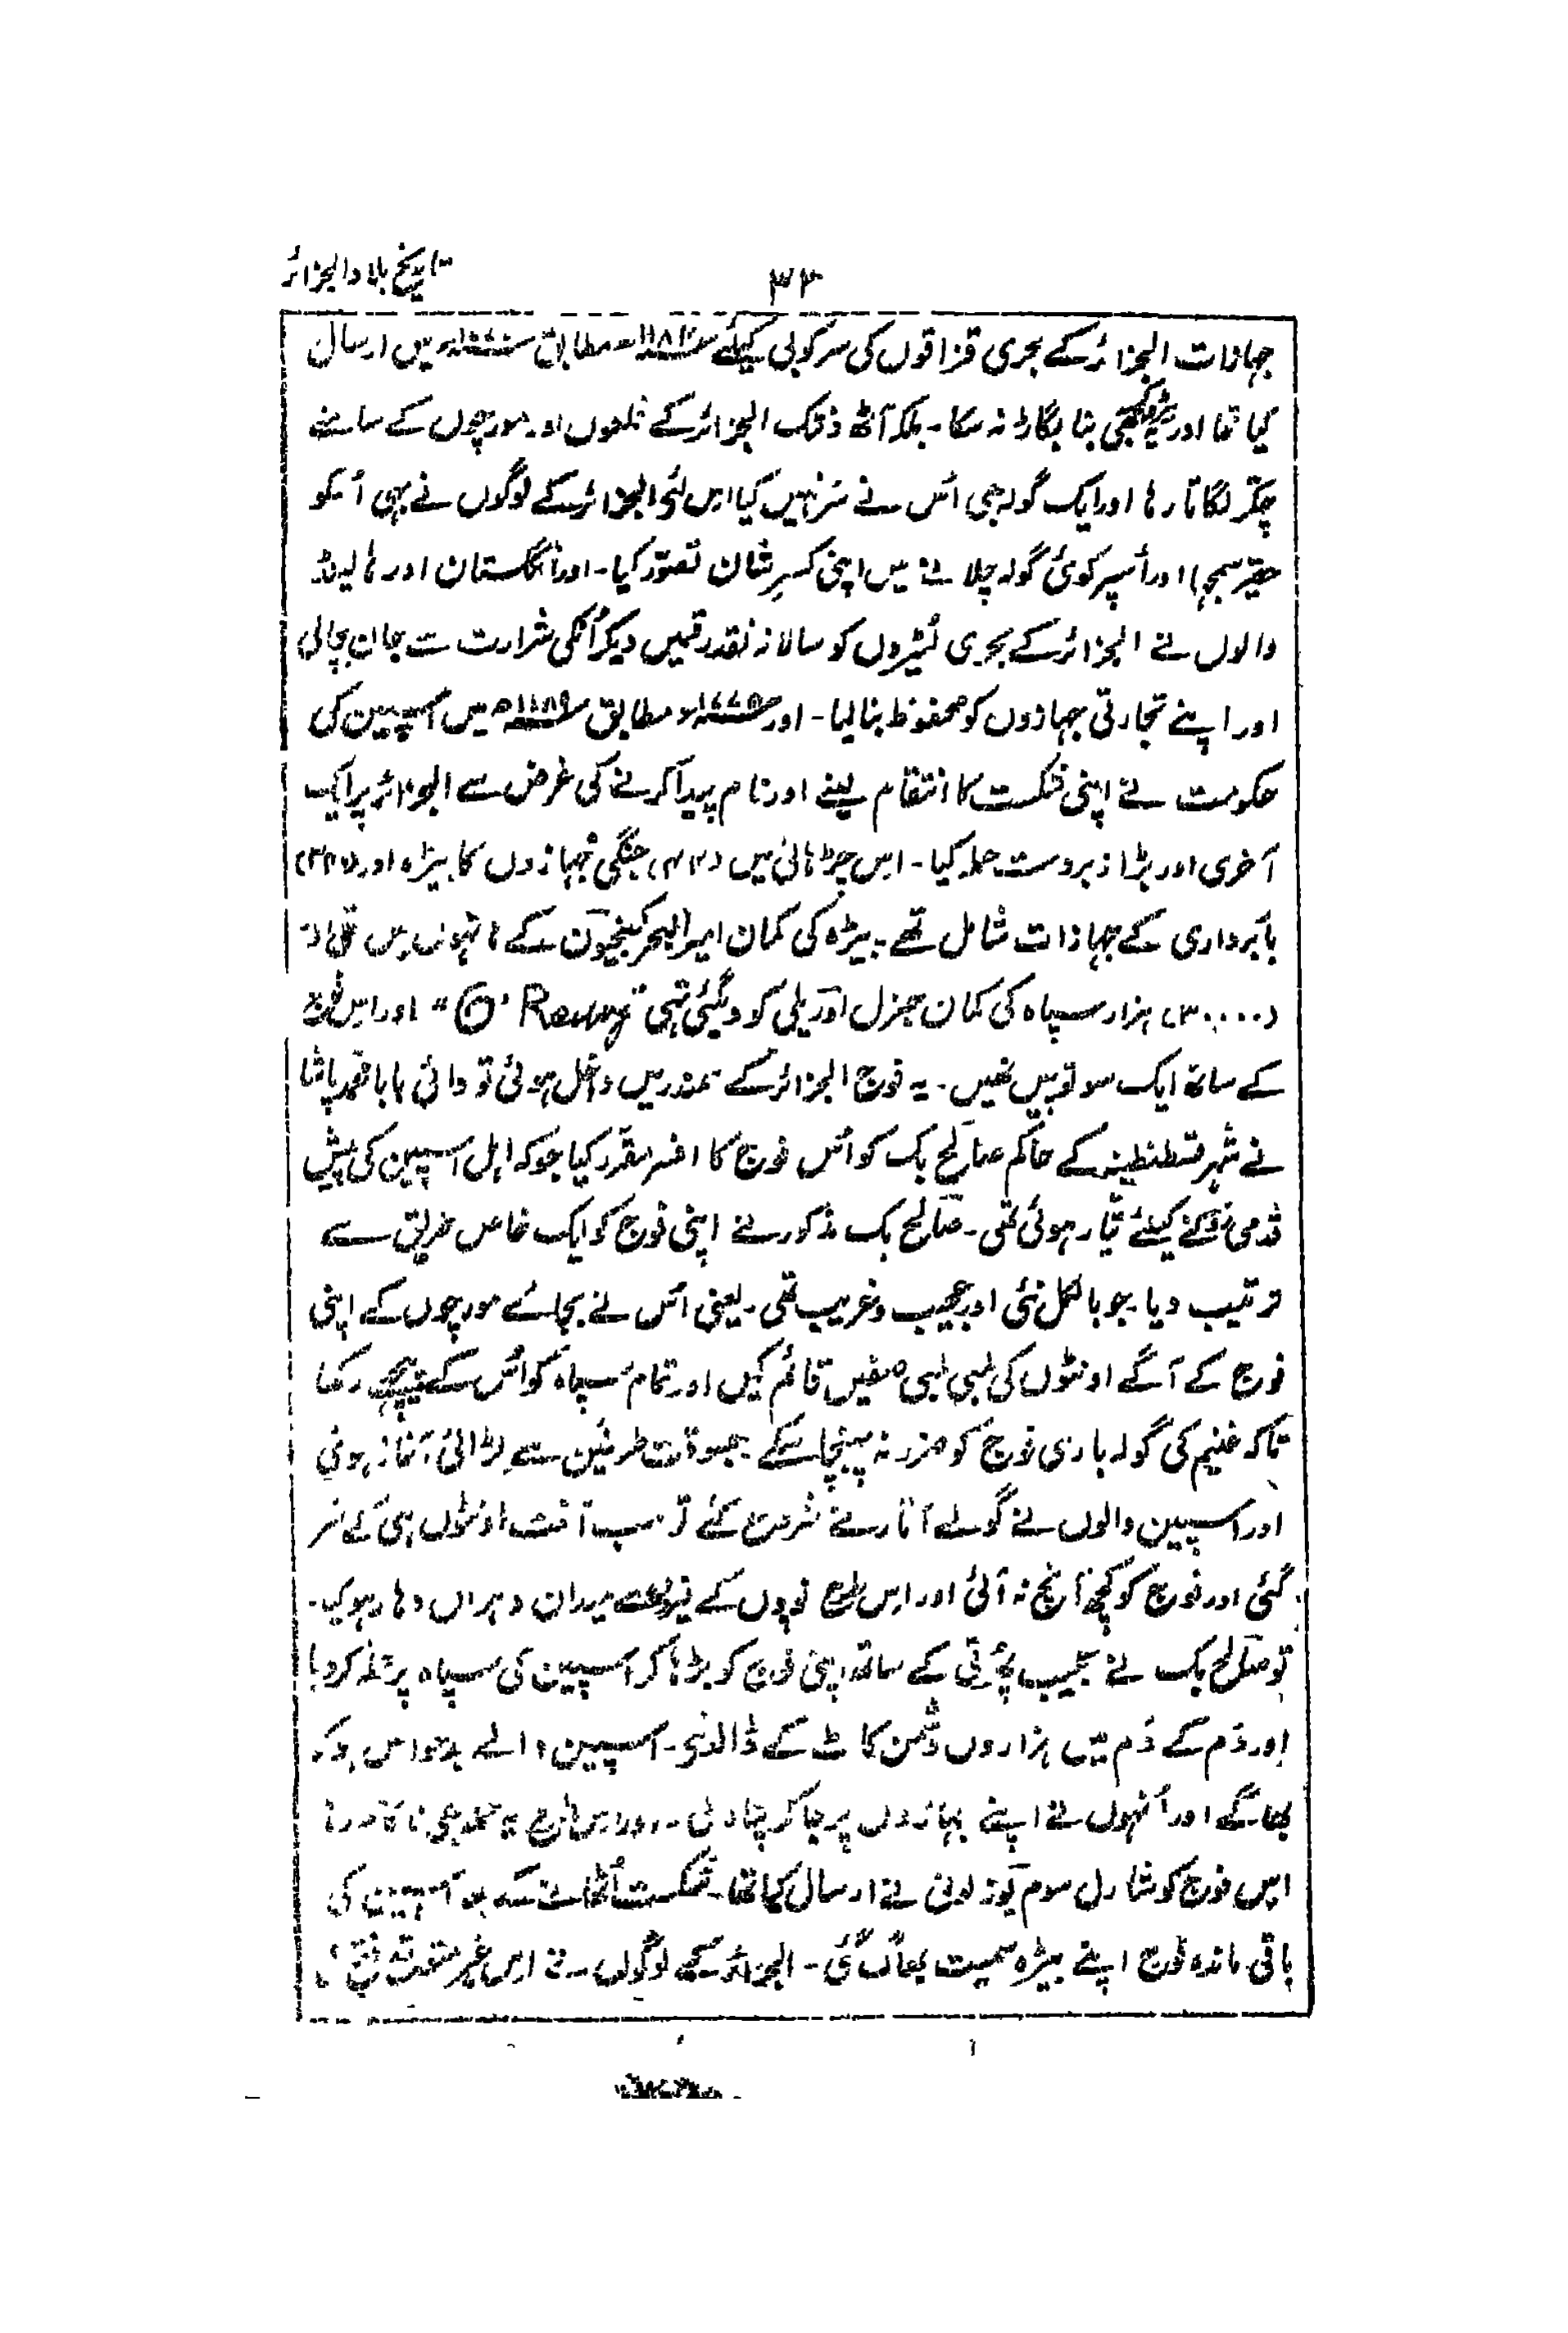 تاریخ بلاد الجزائر
۳۴
جہازات الجزائر کے بحری قزاقوں کی سرکوبی کیلئے ۱۱۸۴ مطابق ۱۷۷۰ء میں ارسال
کیا تھا اور بنا بگاڑ نہ سکا۔ بلکہ آٹھ دن تک الجزائر کے قلعوں اور مورچوں کے سامنے
چکر لگاتا رہا اور ایک گولہ بھی اُس نے سر نہیں کیا اس لئے الجزائر کے لوگوں نے بھی اُسکو
حقیر سمجھا اور اُسپر کوئی گولہ چلانے میں اپنی کسرِ شان تصوّر کیا۔ اور انگلستان اور ہالینڈ
والوں نے الجزائر کے بحری لُٹیروں کو سالانہ نقد رقمیں دیکر اُنکی شرارت سے جان بچالی
اور اپنے تجارتی جہازوں کو محفوظ بنا لیا۔ اور ۱۷۷۵ء مطابق ۱۱۸۹ھ میں اسپین کی
حکومت نے اپنی شکست کا انتقام لینے اور نام پیدا کرنے کی غرض سے الجزائر پر ایک
آخری اور بڑا زبردست حملہ کیا۔ اس چڑہائی میں (۴۴) جنگی جہازوں کا بیڑہ اور (۳۴۰)
باربرداری کے جہازات شامل تھے۔ بیڑہ کی کمان امیر البحر کے ہاتھوں میں تھی اور
(۳۰۰۰۰) ہزار سپاہ کی کمان جنرل اوریلی کو دیگئی تھی "O' Reuny" اور اس فوج
کے ساتھ ایک سو توپیں تھیں۔ یہ فوج الجزائر کے سمندر میں داخل ہوئی تو دائی بابا محمد پاشا
نے شہر قسطنطینہ کے حاکم صالح بک کو اُس فوج کا افسر مقرر کیا جو کہ اہل اسپین کی پیش
قدمی روکنے کیلئے تیّار ہوئی تھی۔ صالح بک مذکور نے اپنی فوج کو ایک خاص طریق سے
ترتیب دیا جو بالکل نئی اور عجیب و غریب تھی۔ یعنی اُس نے بجائے مورچوں کے اپنی
فوج کے آگے اونٹوں کی لمبی لمبی صفیں قائم کیں اور تمام سپاہ کو اُس کے پیچھے رکھا
تاکہ غنیم کی گولہ باری فوج کو ضرر نہ پہنچا سکے۔ جسوقت طرفین سے لڑائی آغاز ہوئی
اور اسپین والوں نے گولے اُتارنے شروع کئے تو سب آفت اونٹوں ہی کے سر
گئی اور فوج کو کچھ آنچ نہ آئی اور اس طرح توپوں کے میدان دہواں دہار ہوگیا۔
تو صالح بک نے عجیب پھُرتی کے ساتھ اپنی فوج کو بڑہا کر اسپین کی سپاہ پر حملہ کردیا
اور دَم کے دَم میں ہزاروں دشمن کاٹ کے ڈالدئے۔ اسپین والے بدحواس ہوکر
بھاگے اور اُنہوں نے اپنے جہازوں پر جاکر پناہ لی۔ اور اس طرح یہ حملہ بھی ناکام رہا
اس فوج کو شارل سوم نے ارسال کیا تھا۔ شکست اُٹھانے کے بعد اسپین کی
باقی ماندہ فوج اپنے بیڑہ سمیت بھاگ گئی۔ الجزائر کے لوگوں نے اس غیر متوقع فتح